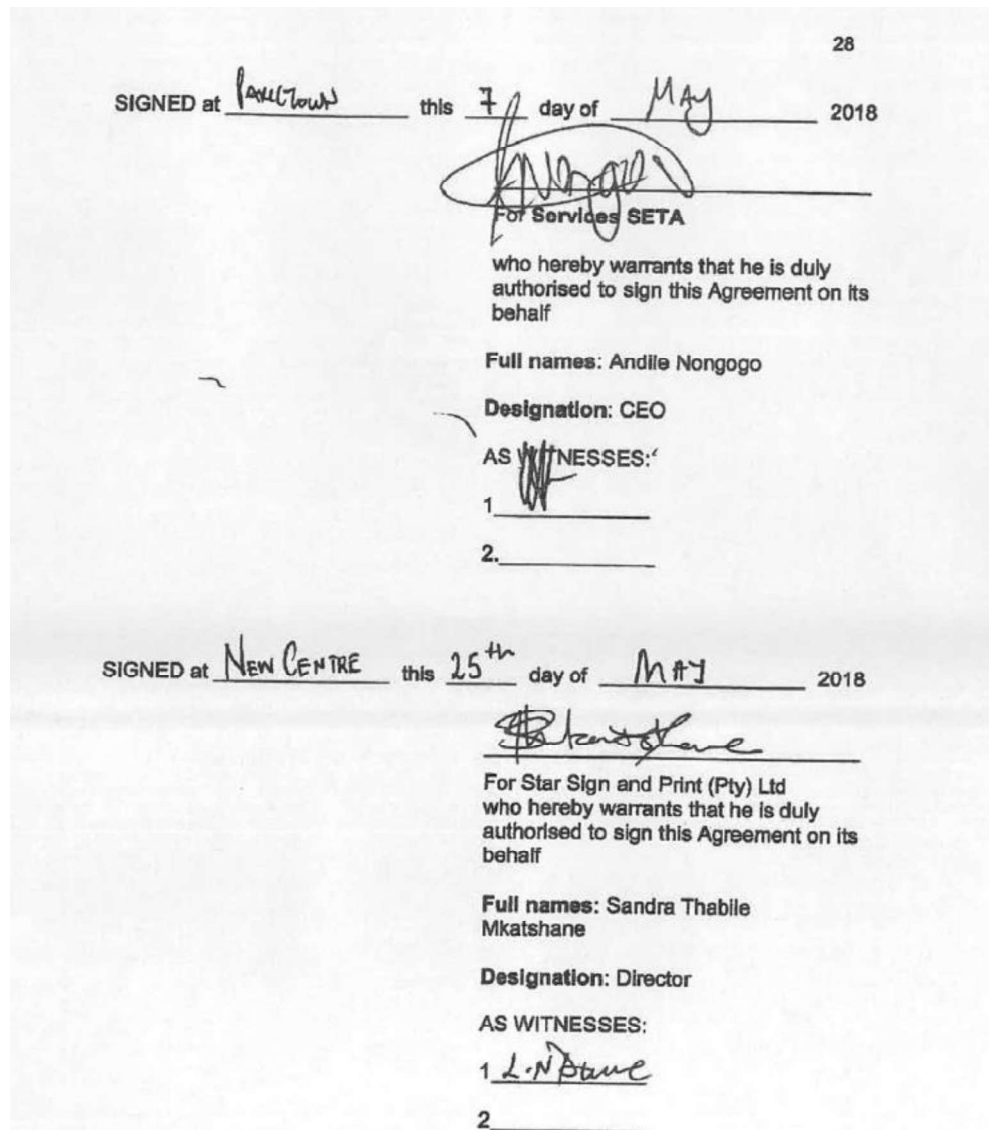 28
SIGNED at Parktown this 7 day of May 2018
For Services SETA
who hereby warrants that he is duly
authorised to sign this Agreement on its
behalf
Full names: Andile Nongogo
Designation: CEO
AS WITNESSES:
1
2.
SIGNED at NEW CENTRE this 25th day of MAY 2018
For Star Sign and Print (Pty) Ltd
who hereby warrants that he is duly
authorised to sign this Agreement on its
behalf
Full names: Sandra Thabile
Mkatshane
Designation: Director
AS WITNESSES:
1
2